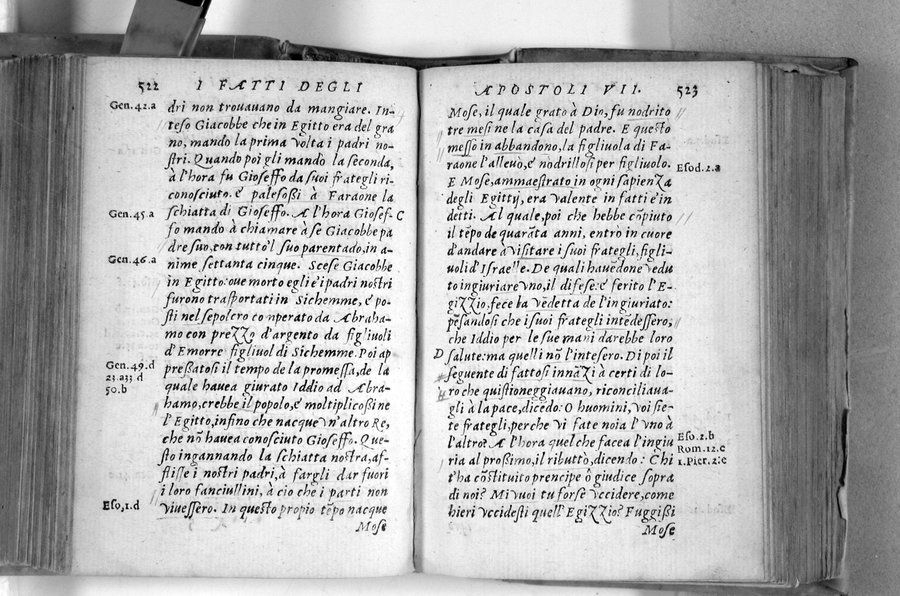 522 I FATTI DEGLI
Gen. 42.a
dri non trouauano da mangiare. In-
teso Giacobbe che in Egitto era del gra
no, mandò la prima volta i padri no-
stri. Quando poi gli mandò la seconda,
à l'hora fu Gioseffo da suoi frategli ri-
conosciuto. e palesoßi à Faraone la
Gen. 45.a
schiatta di Gioseffo. A l'hora Giosef- C
fo mandò à chiamare à se Giacobbe pa
dre suo, con tutto'l suo parentado, in a-
Gen. 46.a
nime settanta cinque. Scese Giacobbe
in Egitto: oue morto egli e i padri nostri
furono trasportati in Sichemme, e po-
sti nel sepolcro comperato da Abraha-
mo con prezzo d'argento da figliuoli
d'Emorre figliuol di Sichemme. Poi ap
Gen. 49.d
preßatosi il tempo de la promessa, de la
23.a 33 d
quale hauea giurato Iddio ad Abra-
50.b
hamo, crebbe il popolo, e moltiplicoßi ne
l'Egitto, infino che nacque vn'altro Re,
che nõ hauea conosciuto Gioseffo. Que-
sto ingannando la schiatta nostra, af-
flisse i nostri padri, à fargli dar fuori
i loro fanciullini, à cio che i parti non
Eso, 1.d
viuessero. In questo propio tẽpo nacque
Mose
APOSTOLI VII. 523
Mose, il quale grato à Dio, fu nodrito
tre mesi ne la casa del padre. E questo
messo in abbandono, la figliuola di Fa-
raone l'alleuò, e nodrillosi per figliuolo.
Esod. 2.a
E Mose, ammaestrato in ogni sapienza
degli Egittij, era valente in fatti e'in
detti. Al quale, poi che hebbe cõpiuto
il tẽpo de quarãta anni, entrò in cuore
d'andare à visitare i suoi frategli, figli-
uoli d'Israelle. De quali hauẽdone vedu
to ingiuriare vno, il difese: e ferito l'E-
gizzio, fece la vẽdetta de l'ingiuriato:
pẽsandosi che i suoi frategli intedessero,
che Iddio per le sue mani darebbe loro
D salute: ma quelli nõ l'intesero. Di poi il
seguente dì fattosi innãzi à certi di lo-
ro che quistioneggiauano, riconciliaua-
gli à la pace, dicẽdo: O huomini, voi sie-
te frategli, perche vi fate noia l'vno à
Eso. 2.b
l'altro? A l'hora quel che facea l'ingiu
Rom. 12.c
ria al proßimo, il ributtò, dicendo: Chi
1. Pier. 2.c
t'ha cõstituito prencipe ò giudice sopra
di noi? Mi vuoi tu forse vccidere, come
hieri vccidesti quell'Egizzio? Fuggißi
Mose